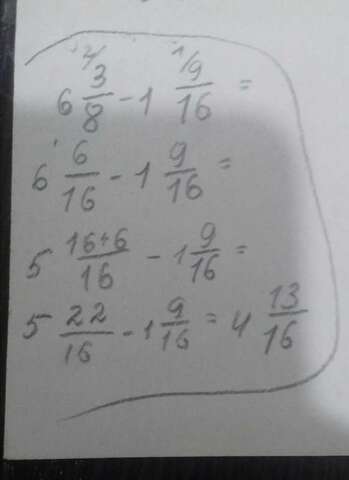 6 2/ 3/8 - 1 1/ 9/16 =
6 6/16 - 1 9/16 =
5 16+6/16 - 1 9/16 =
5 22/16 - 1 9/16 = 4 13/16